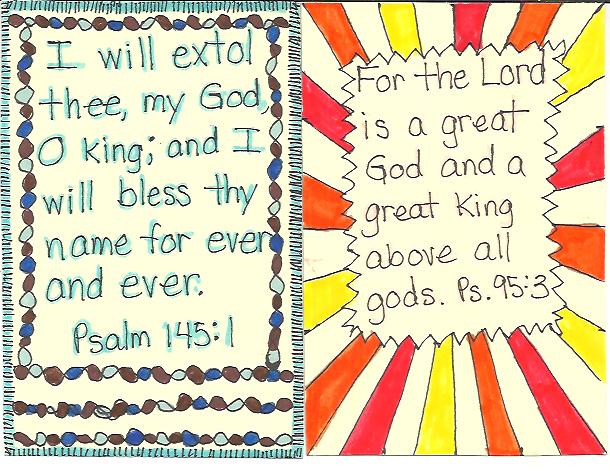 I will extol
thee, my God,
O king; and I
will bless thy
name for ever
and ever.
Psalm 145:1
For the Lord
is a great
God and a
great King
above all
gods. Ps. 95:3